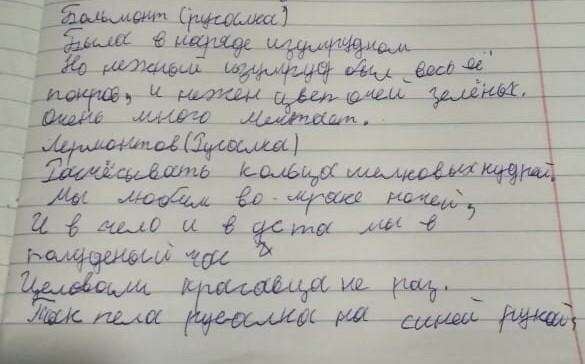 Бальмонт (русалка)
Была в наряде изумрудном
Но нежный изумруд был весь её
покров, и нежен цвет очей зелёных.
Очень много мечтает.
Лермонтов (Русалка)
Расчёсывать кольца шелковых кудрей
Мы любим во мраке ночей,
И в чело и в уста мы в
полуденый час
Целовали красавца не раз.
Так пела русалка на синей рукой,